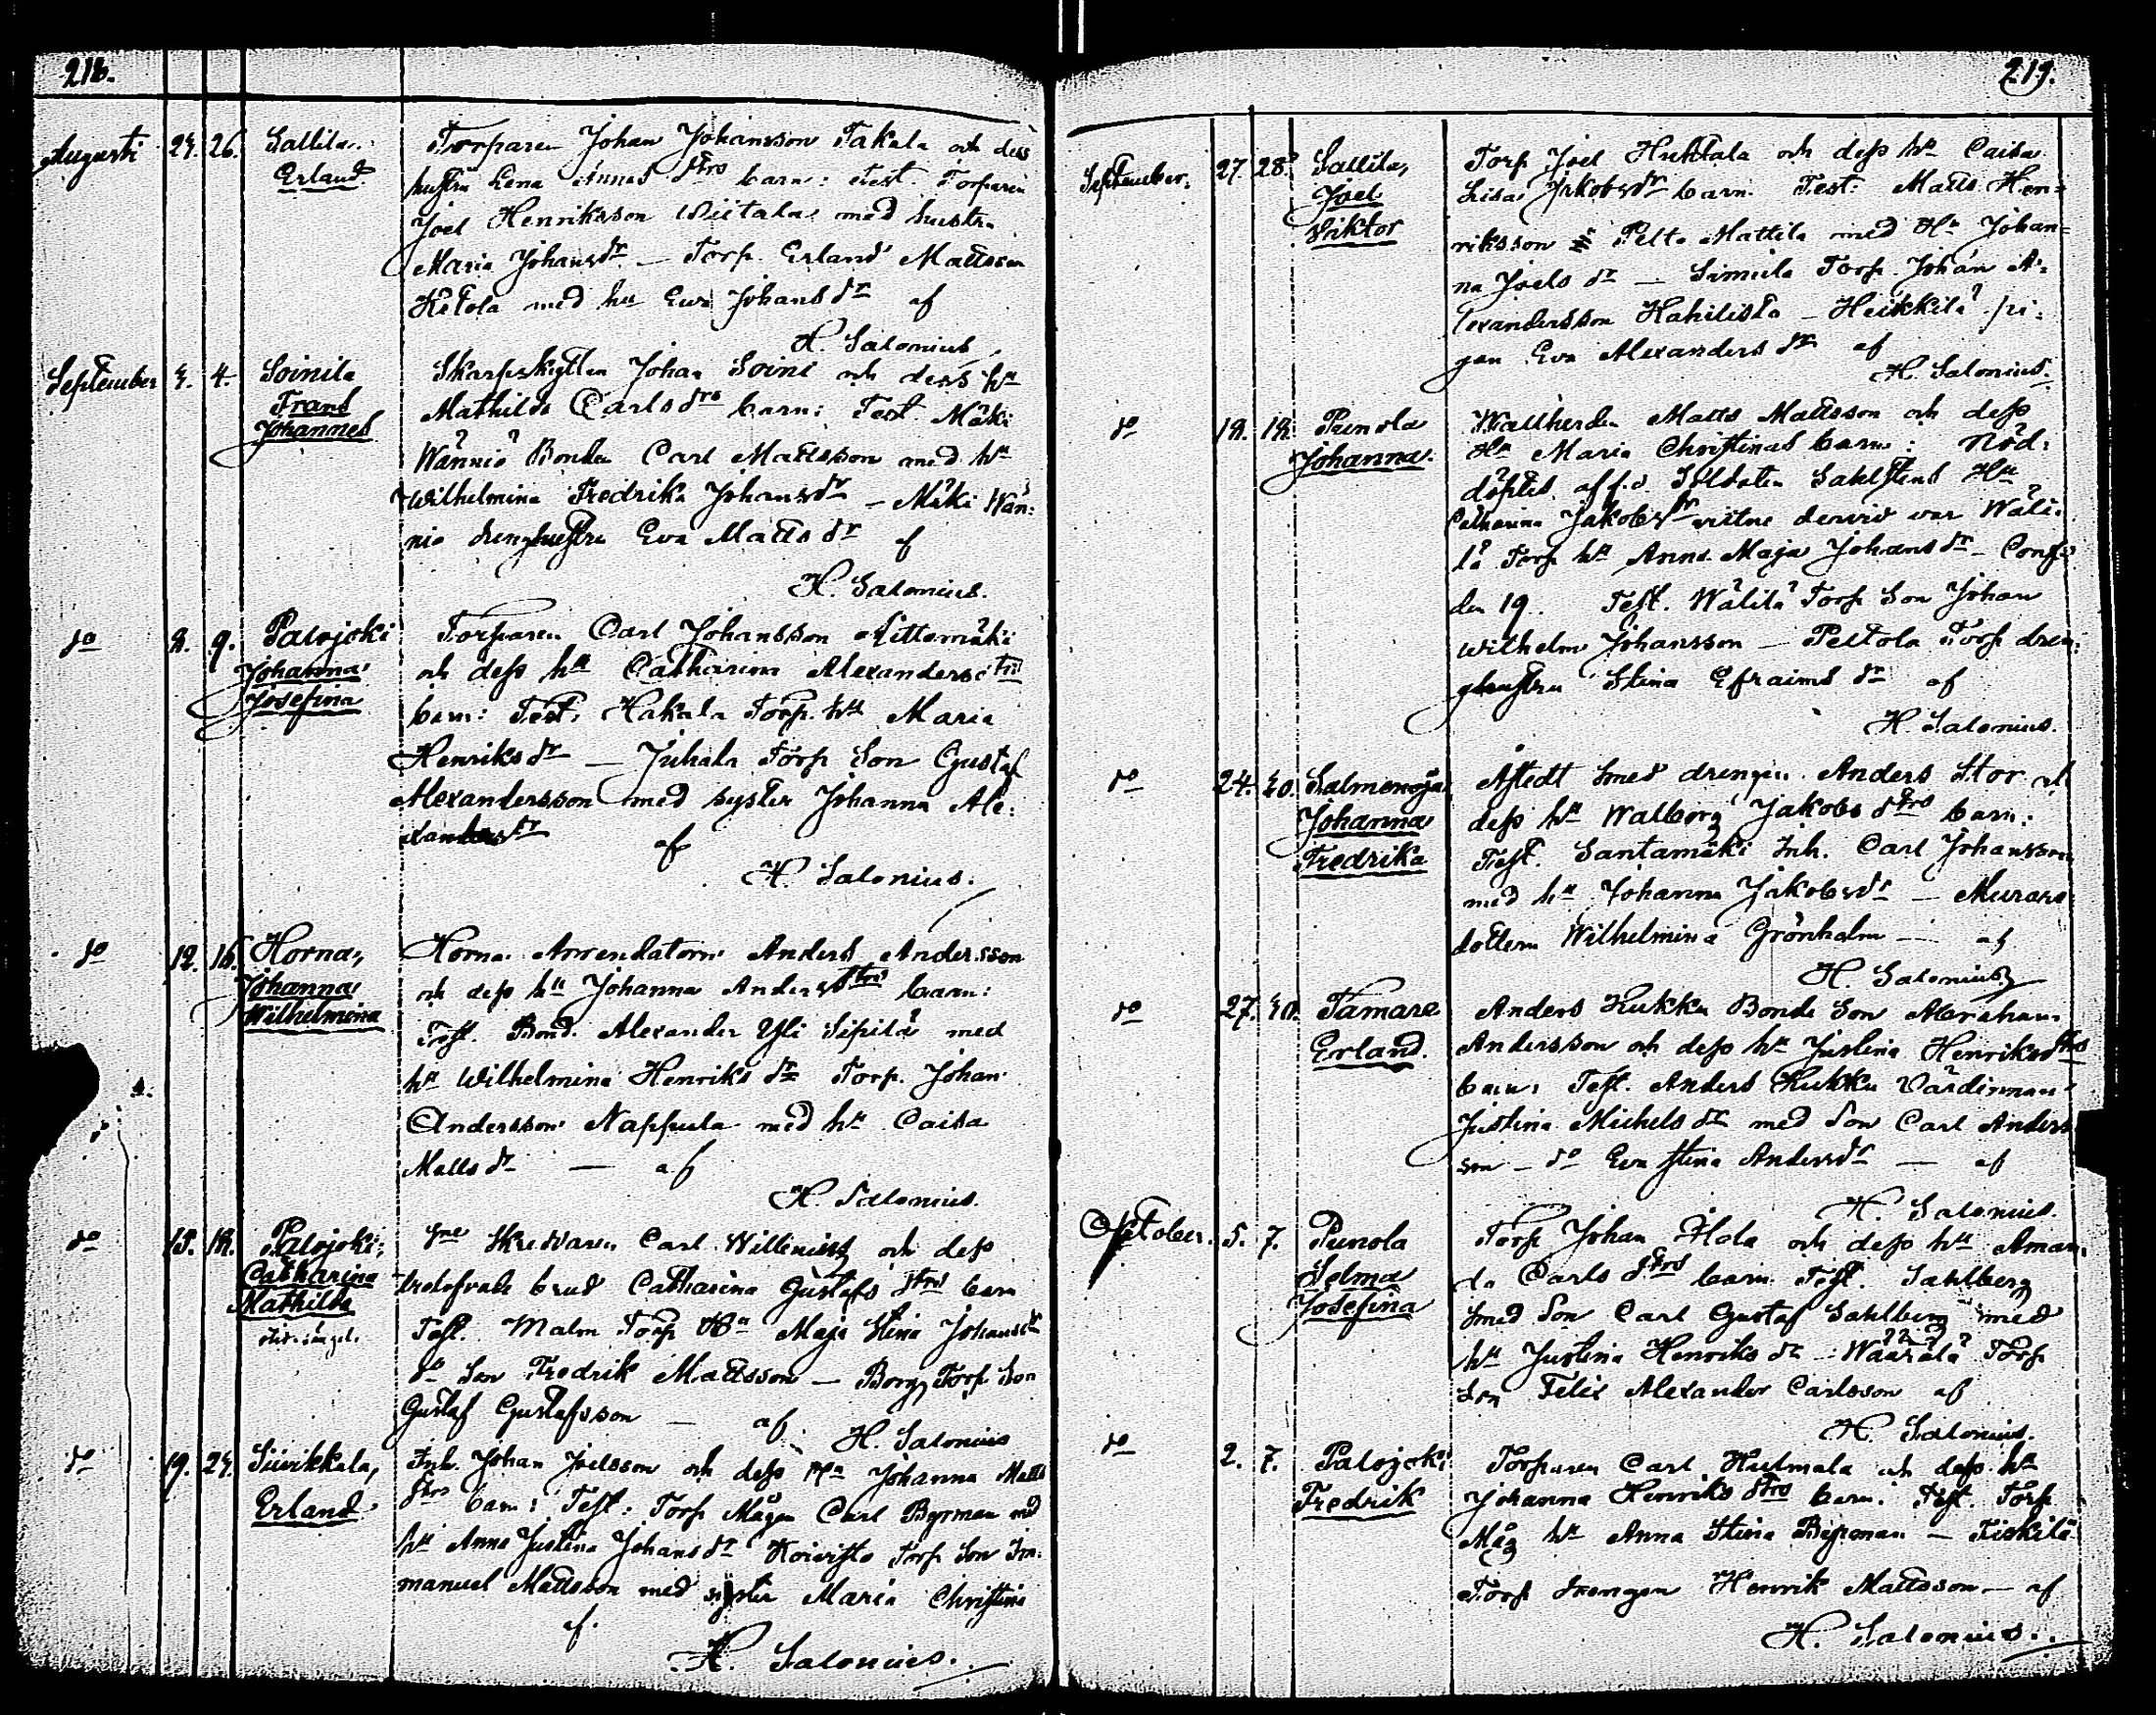 218.
Augusti 24. 26. Sallila. Torparen Johan Johansson Takala och dess
Erland. hustru Lena Annas dtrs barn: Test. Torparen
Joel Henriksson Wiitala med hustru
Maria Johansdr — Torp. Erland Mattsson
Ketola med hu Eva Johansdr af
H. Salonius
September 3. 4. Soinila Skarpskytten Johan Soini och dess hu
Frans Mathilda Carlsdrs barn: Test. Mäki
Johannes Wänniö Bonden Carl Mattsson med hu
Wilhelmina Fredrika Johansdr — Mäki Wän:
niö drenghustru Eva Mattsdr af
H. Salonius.
do 8. 9. Palojoki Torparen Carl Johansson
Johanna och dess hu Catharina Alexanders
Josefina barn: Test. Hakala Torp. hu Maria
Henriksdr — Juhala Torp Son Gustaf
Alexandersson med syster Johanna Ale:
xandersdr af
H. Salonius.
do 12. 16. Horna, Horna Arrendatorn Anders Andersson
Johanna och dess hu Johanna Anders dtrs barn:
Wilhelmina Test. Bond. Alexander Yli Sipilä med
hu Wilhelmina Henriksdr Torp. Johan
Andersson Nappula med hu Caisa
Mattsdr — af
H. Salonius.
do 15. 18. Palojoki, Carl Willenius och dess
Catharina trolofvade brud Catharina Gustafs dtrs barn
Mathilda Test. Malm Torp Hu Maja Stina Johansdr
do Son Fredrik Mattsson — Borg Torp Son
Gustaf Gustafsson — af H. Salonius
do 19. 24. Siivikkala, Inh. Johan Joelsson och dess Hu Johanna Matts
Erland dtrs barn: Test: Torp Mågen Carl Byrman med
hu Anna Justina Johansdr Koivisto Torp Son Im:
manuel Mattsson med syster Maria Christina
af.
H. Salonius.
219.
September. 27. 28. Sallila, Torp Joel Huhtala och dess hu Caisa
Joel Lisa Jakobsdr barn. Test: Matts Hen=
Viktor riksson Pelto Mattila med Hu Johan=
na Joelsdr — Simula Torp. Johan A:
lexandersson Hahilisto — Heikkilä pi:
gan Eva Alexandersdr af
H. Salonius.
do 18. 18. Punola Wallherden Matts Mattsson och dess
Johanna. Hu Maria Christinas barn: Nöd:
döptes af f.d. Soldaten Sahlstens Hu
Catharina Jakobsdr vittne dervid var Wäli:
lä Torp hu Anna Maja Johansdr — Conf:
den 19. Test. Wälilä Torp Son Johan
Wilhelm Johansson — Peltola Torp dren:
ghustru Stina Efraimsdr af
H. Salonius.
do 24. 30. Salmenoja Åstedt Smed drengen Anders Stor och
Johanna dess hu Walborg Jakobs dtrs barn:
Fredrika Test. Santamäki Inh. Carl Johansson
med hu Johanna Jakobsdr — Murare
dottern Wilhelmina Grönholm — af
H. Salonius
do 27. 30. Tamare Anders Kukku Bonde Son Abraham
Erland. Andersson och dess hu Justina Henriksdtrs
barn: Test. Anders Kukku Värdinnan
Justina Michelsdr med Son Carl Anders
son — do Eva Stina Andersdr — af
H. Salonius.
October. 5. 7. Punola Torp Johan Hola och dess hu Aman:
Selma da Carls dtrs barn. Test. Sahlberg
Josefina Smed Son Carl Gustaf Sahlberg med
hu Justina Henriksdr — Wäärälä Torp
Son Felix Alexander Carlsson af
H. Salonius.
do 2. 7. Palojoki Torparen Carl Huhmala och dess hu
Fredrik Johanna Henriks dtrs barn: Test. Torp
Måg hu Anna Stina — Fiskilä
Torp drengen Henrik Mattsson — af
H. Salonius.